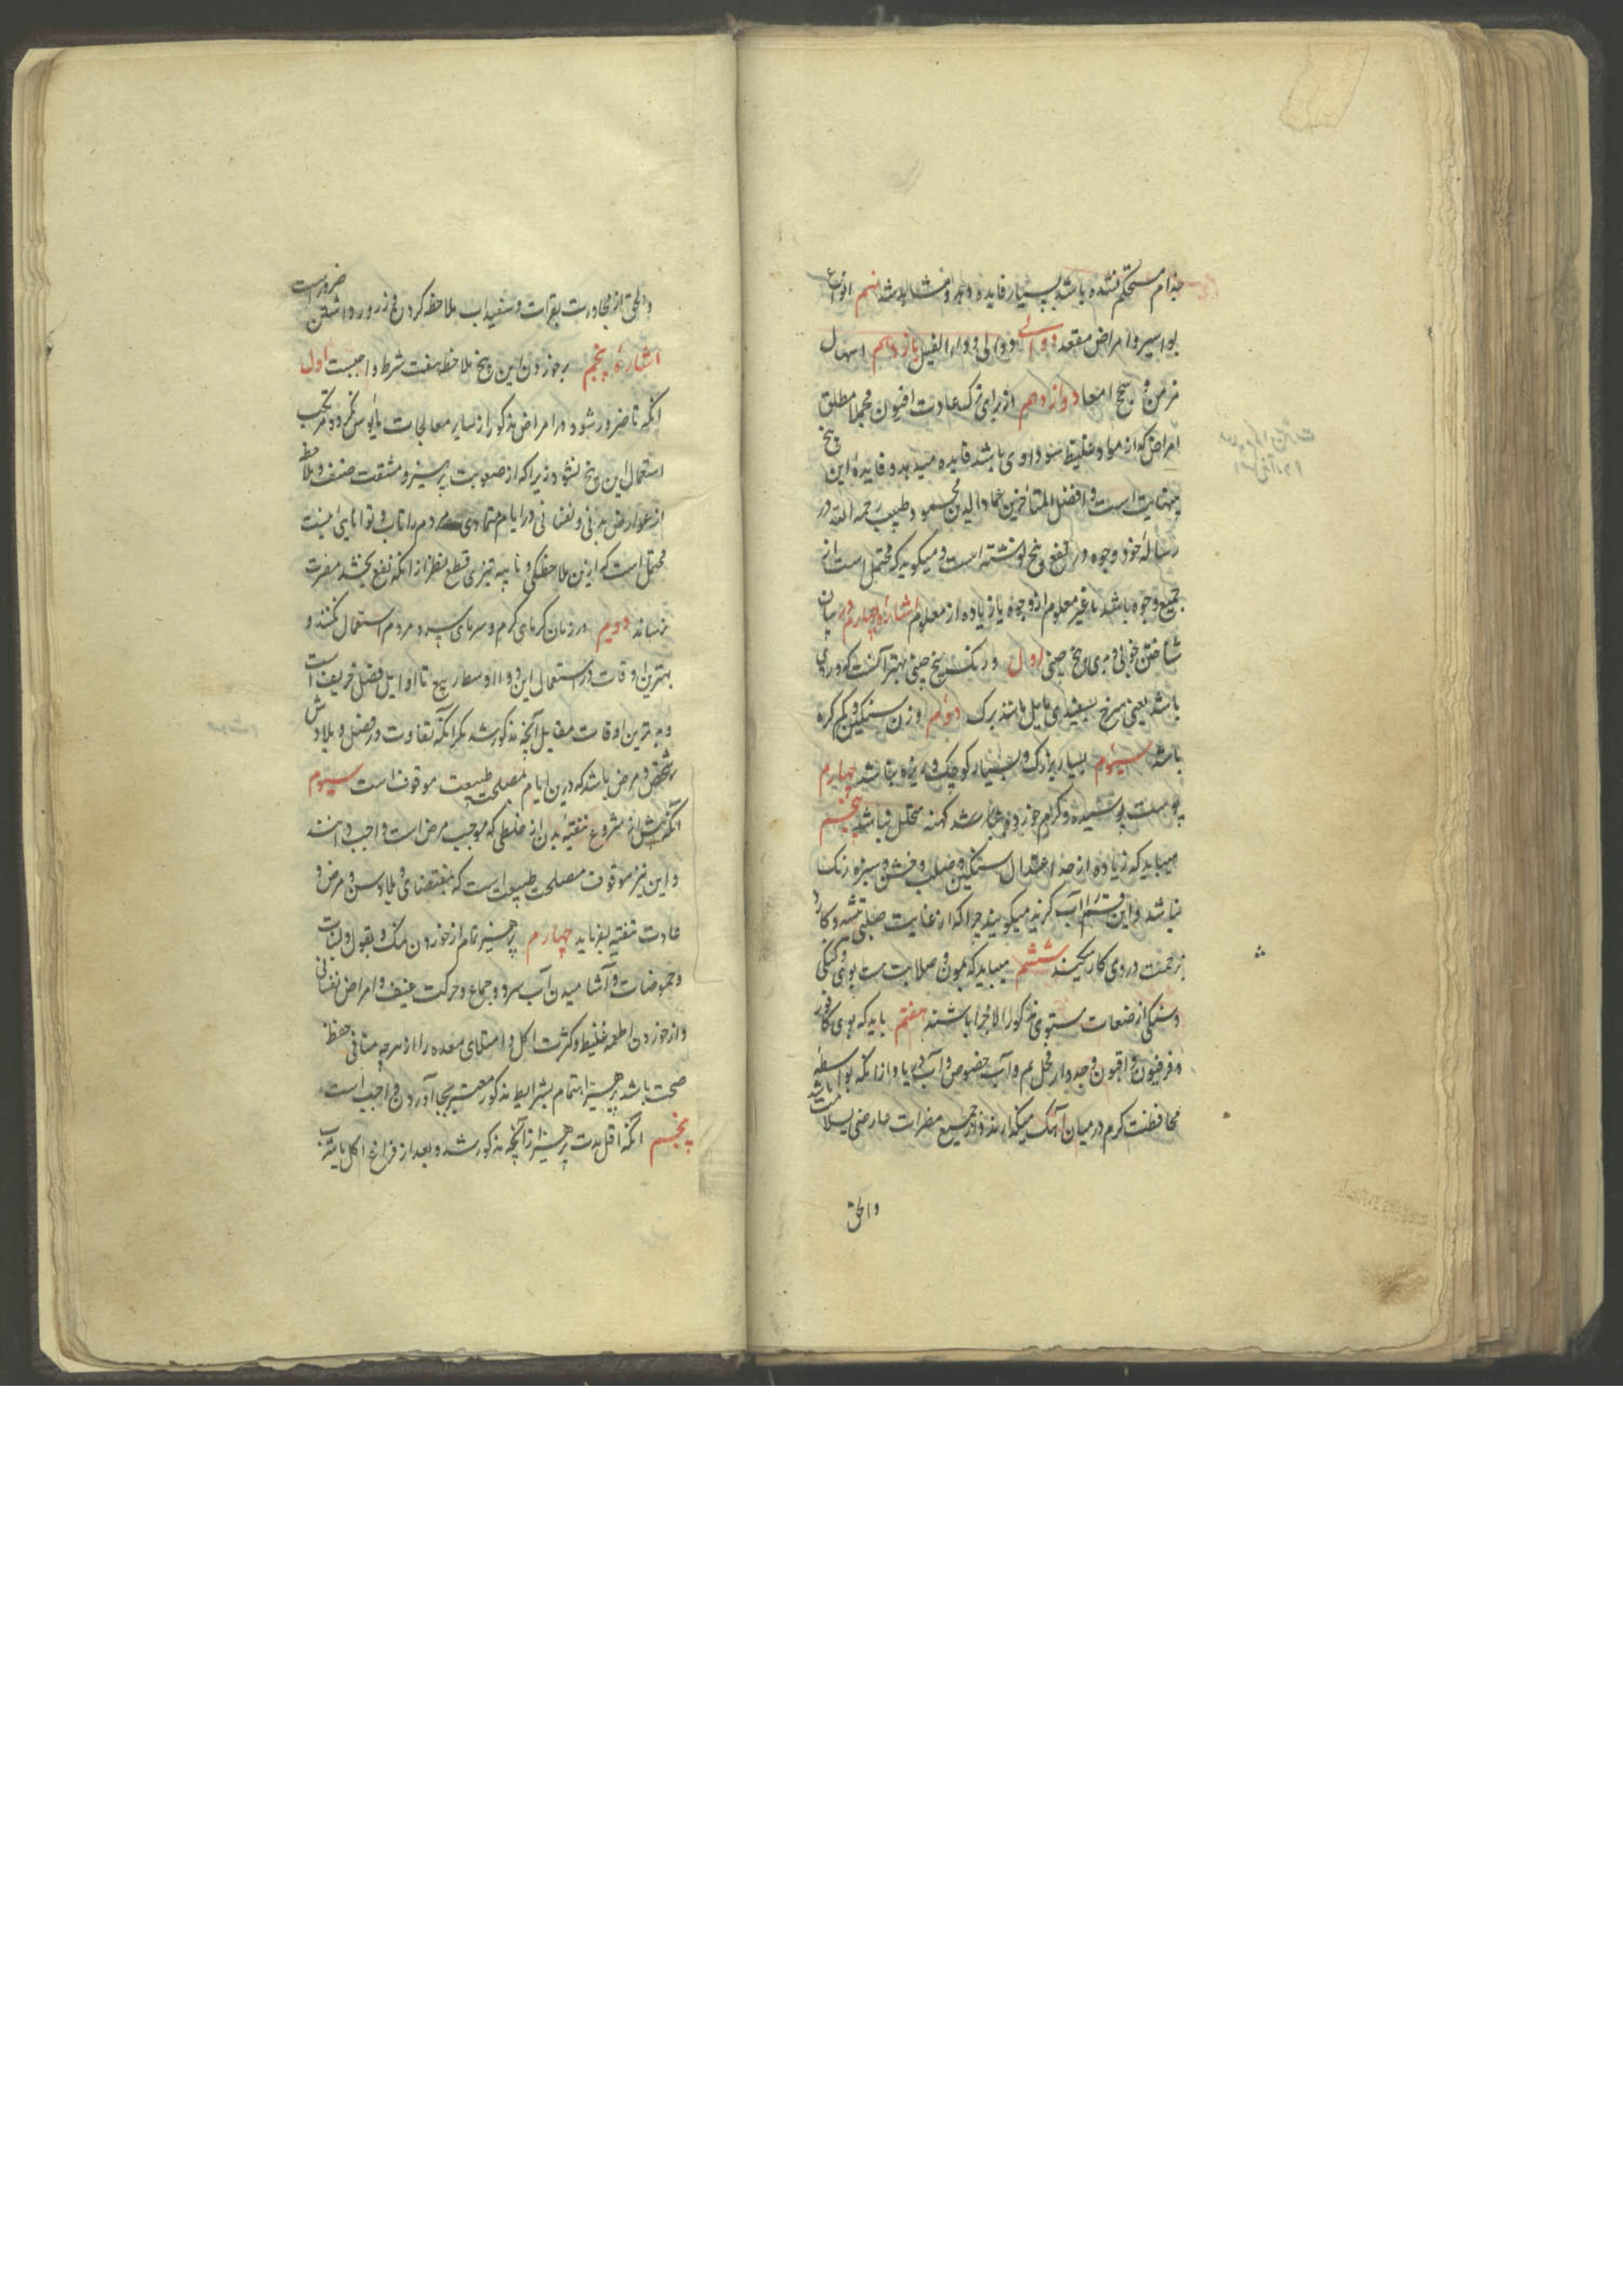 جذام مستحکم نشده باشد بسیار فایده دهد و مشاهد شد نهم انواع
بواسیر و امراض مقعد دوالی و داء الفیل یازدهم اسهال
مزمن و سحج امعا دوازدهم از برای ترک عادت افیون و مجملا مطلق
امراض که از مواد غلیظ سوداوی باشد فایده میدهد و فایدهٔ این بیخ
بینهایت است و افضل المتأخرین عماد الدین محمود طبیب رحمه الله در
رسالهٔ خود وجوه در نفع بیخ نوشته است و میگوید که محتمل است از
جمیع وجوه باشد یا غیر معلوم از وجوه یا زیاده از معلوم اشارهٔ چهارم در بیان
شناختن خوبی و بدی بیخ چینی اول در رنگ بیخ چینی بهتر آنست که وردی
باشد یعنی سرخ بسفیدی مایل مانند برک دوم وزن سنگین و کم کره
باشد سیوم بسیار بزرک و بسیار کوچک و ریزه نباشد چهارم
پوست پوسیده و کرم خورده نباشد کهنه متخلل نباشد پنجم
میباید که زیاده از حد اعتدال سنگین و صلب و خشن و سبزه رنک
نباشد و این قسم را آب کزیده میکویند چرا که از غایت صلبی تیشه و کارد
بزحمت در وی کار میکنند ششم میباید که بمون و صلابت بوی و کمکی
و سنگی از صنعات ستوی مذکور الاجزا باشند هفتم باید که بوی کافور
و فرفیون و افیون و جدوار و نخل بم و آب خصوص و آب دریا و ازانکه بواسطهٔ
محافظت کرم در میان آهک میگذارند و از جمیع مضرات عارضی بسلامت باشد
والحق
والحق از مجاورت بقرات و سفیداب ملاحظه کردن و زرور داشتن ضرورست
اشارهٔ پنجم بر خوردن این بیخ ملاحظه هفت شرط واجبست اول
انکه تا ضرور نشود و در امراض مذکور از سایر معالجات مأیوس نکردد مرتکب
استعمال این بیخ نشود زیرا که از صعوبت پرهیز و مشقت ضعف و ملاحظه
از عوارض بدنی و نفسانی در ایام متمادی مردم را تاب و توانایی نیست
محتمل است که ازین ملاحظکی و ناپرهیزی قطع نظر از انکه نفع بخشد مضرت
برساند دویم در زمان کرمای کرم و سرمای سرد مردم استعمال نکنند و
بهترین اوقات در استعمال این دوا اواسط ربیع تا اوایل فصل خریف است
و بدترین اوقات مقابل آنچه مذکور شد مکر انکه تفاوت در فصل و بلاد ش
شخص و مرض باشد که درین ایام مصلحت طبیعت موقوف است سیوم
آنکه پیش از شروع تنقیهٔ بدن از خلطی که موجب مرض است واجب دانند
و این نیز موقوف مصلحت طبیب است که بمقتضای بلاد و سن و مرض و
عادت تنقیه بفرماید چهارم پرهیز تمام از خوردن نمک و بقول و لبنیات
و حموضات و آشامیدن آب سرد و جماع و حرکت عنیف و امراض نفسانی
و از خوردن اطعمه غلیظ و کثرت اکل و امتلای معده را و هرچه منافی حفظ
صحت باشد پرهیز اهتمام بشرایط مذکور معتبر بجا آوردن واجب است
پنجم انکه اقل مدت پرهیز از آنچه مذکور شد و بعد از فراغ اکل یا شرب